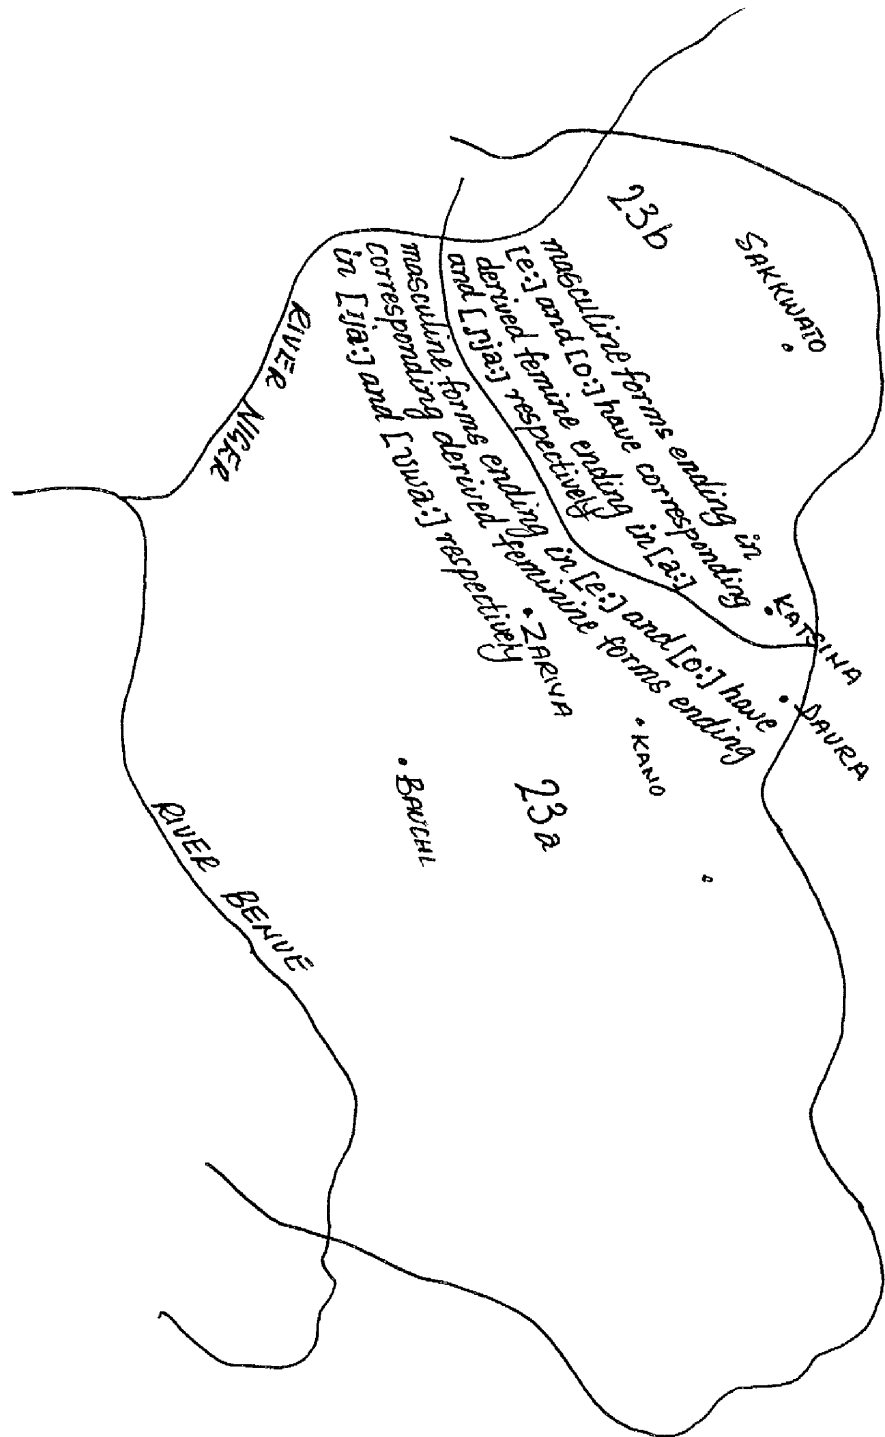 23b
SAKKWATO
masculine forms ending in
[e:] and [o:] have corresponding
derived femine ending in [a:]
and [ɲja:] respectively
KATSINA
DAURA
masculine forms ending in [e:] and [o:] have
corresponding derived feminine forms ending
in [ija:] and [ʊwa:] respectively
ZARIYA
KANO
23a
BAUCHI
RIVER NIGER
RIVER BENUE